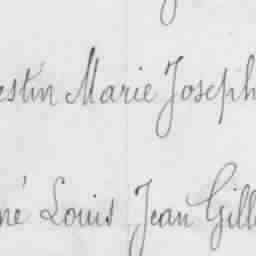 estin Marie Joseph
né Louis Jean Gill